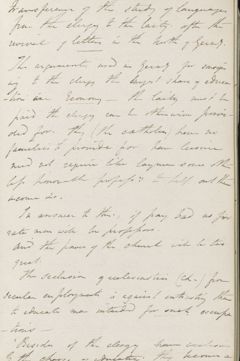 Transference of the study of languages
from the clergy to the laity after the
revival of letters in the North of Germy.
The arguments used in Germy for assign
ing to the clergy the largest share of educa
tion are Economy — the laity must be
paid the clergy can be otherwise provi
ded for. they (the catholics) have no
families to provide for have leisure
need not require like laymen some other
less honorable professn to help out the
income &c.
In answer to this, if pay bad no first
rate men will be professors.
and the power of the church will be too
great.
The seclusion of ecclesiastics (Ch.) from
secular employments is against entrusting them
to educate men intended for such occupa
tions —
Besides if the clergy have
to the